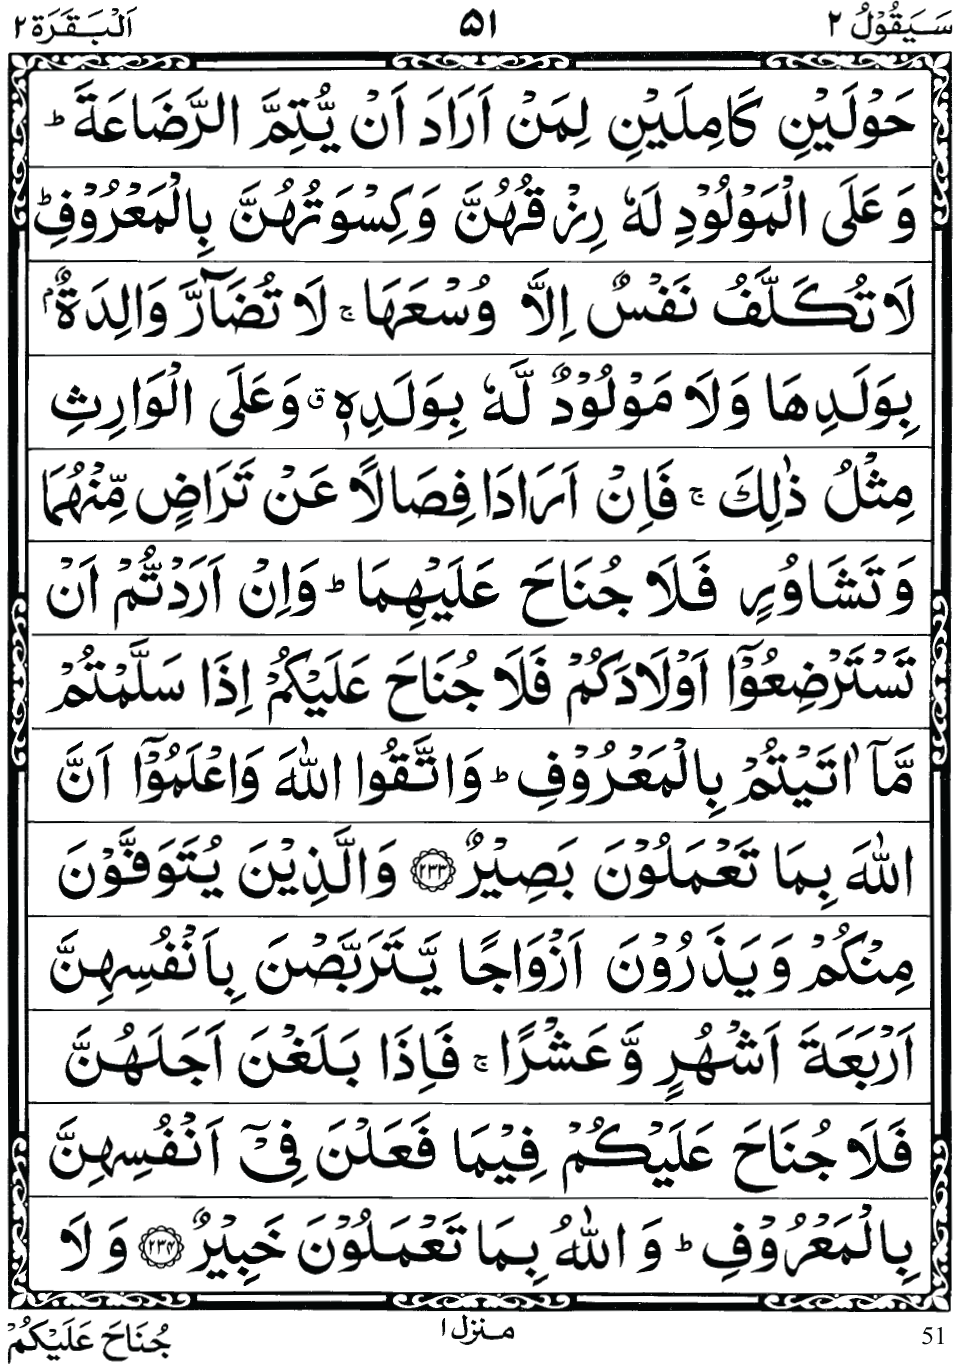 سَيَقُوْلُ ۲ ۵۱ اَلْبَقَرَة ۲
حَوْلَيْنِ كَامِلَيْنِ لِمَنْ اَرَادَ اَنْ يُّتِمَّ الرَّضَاعَةَ ؕ
وَ عَلَى الْمَوْلُوْدِ لَهٗ رِزْقُهُنَّ وَكِسْوَتُهُنَّ بِالْمَعْرُوْفِ ؕ
لَا تُكَلَّفُ نَفْسٌ اِلَّا وُسْعَهَا ۚ لَا تُضَآرَّ وَالِدَةٌۢ
بِوَلَدِهَا وَلَا مَوْلُوْدٌ لَّهٗ بِوَلَدِهٖ ق وَعَلَى الْوَارِثِ
مِثْلُ ذٰلِكَ ۚ فَاِنْ اَرَادَا فِصَالًا عَنْ تَرَاضٍ مِّنْهُمَا
وَتَشَاوُرٍ فَلَا جُنَاحَ عَلَيْهِمَا ؕ وَاِنْ اَرَدْتُّمْ اَنْ
تَسْتَرْضِعُوْٓا اَوْلَادَكُمْ فَلَا جُنَاحَ عَلَيْكُمْ اِذَا سَلَّمْتُمْ
مَّآ اٰتَيْتُمْ بِالْمَعْرُوْفِ ؕ وَاتَّقُوا اللّٰهَ وَاعْلَمُوْٓا اَنَّ
اللّٰهَ بِمَا تَعْمَلُوْنَ بَصِيْرٌ ۲۳۳ وَالَّذِيْنَ يُتَوَفَّوْنَ
مِنْكُمْ وَيَذَرُوْنَ اَزْوَاجًا يَّتَرَبَّصْنَ بِاَنْفُسِهِنَّ
اَرْبَعَةَ اَشْهُرٍ وَّعَشْرًا ۚ فَاِذَا بَلَغْنَ اَجَلَهُنَّ
فَلَا جُنَاحَ عَلَيْكُمْ فِيْمَا فَعَلْنَ فِىْٓ اَنْفُسِهِنَّ
بِالْمَعْرُوْفِ ؕ وَ اللّٰهُ بِمَا تَعْمَلُوْنَ خَبِيْرٌ ۲۳۴ وَلَا
جُنَاحَ عَلَيْكُمْ
منزل ۱
51